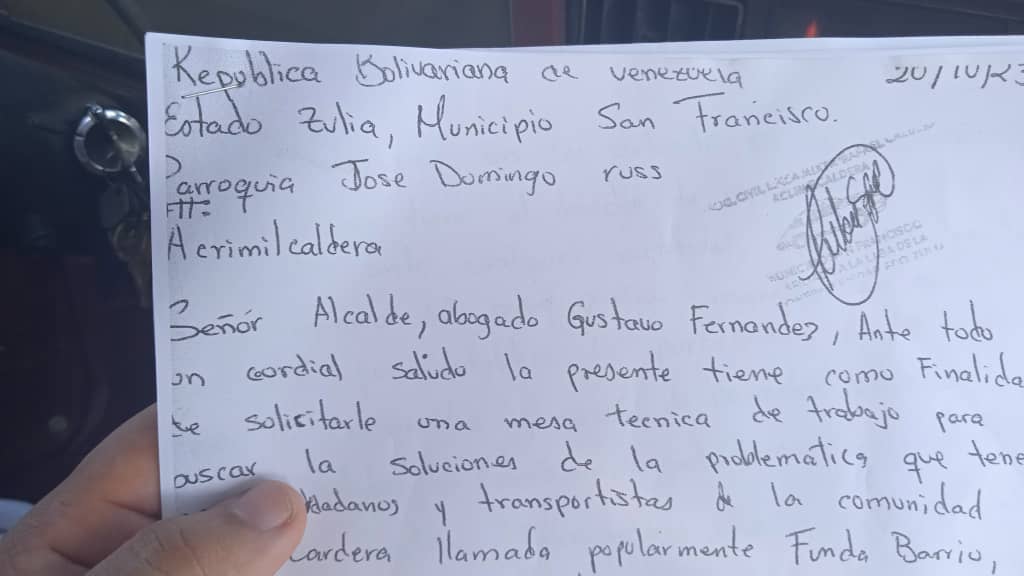 Republica Bolivariana de venezuela 20/10/23
Estado Zulia, Municipio San Francisco.
Parroquia Jose Domingo russ
Att:
Acrimilcaldera
Señor Alcalde, abogado Gustavo Fernandez, Ante todo
un cordial saludo la presente tiene como Finalida
de solicitarle una mesa tecnica de trabajo para
buscar la soluciones de la problematica que tene
dadanos y transportistas de la comunidad
cardera llamada popularmente Funda Barrio,